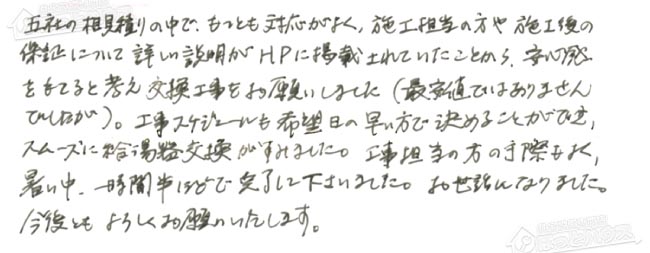 五社の相見積りの中で、もっとも対応がよく、施工担当の方や施工後の
保証について詳しい説明がHPに掲載されていたことから、安心感
をもてると考え交換工事をお願いしました（最安値ではありません
でしたが）。工事スケジュールも希望日の早い方で決めることができ、
スムーズに給湯器交換がすみました。工事担当の方の手際もよく、
暑い中、一時間半ほどで完了して下さいました。お世話になりました。
今後ともよろしくお願いいたします。